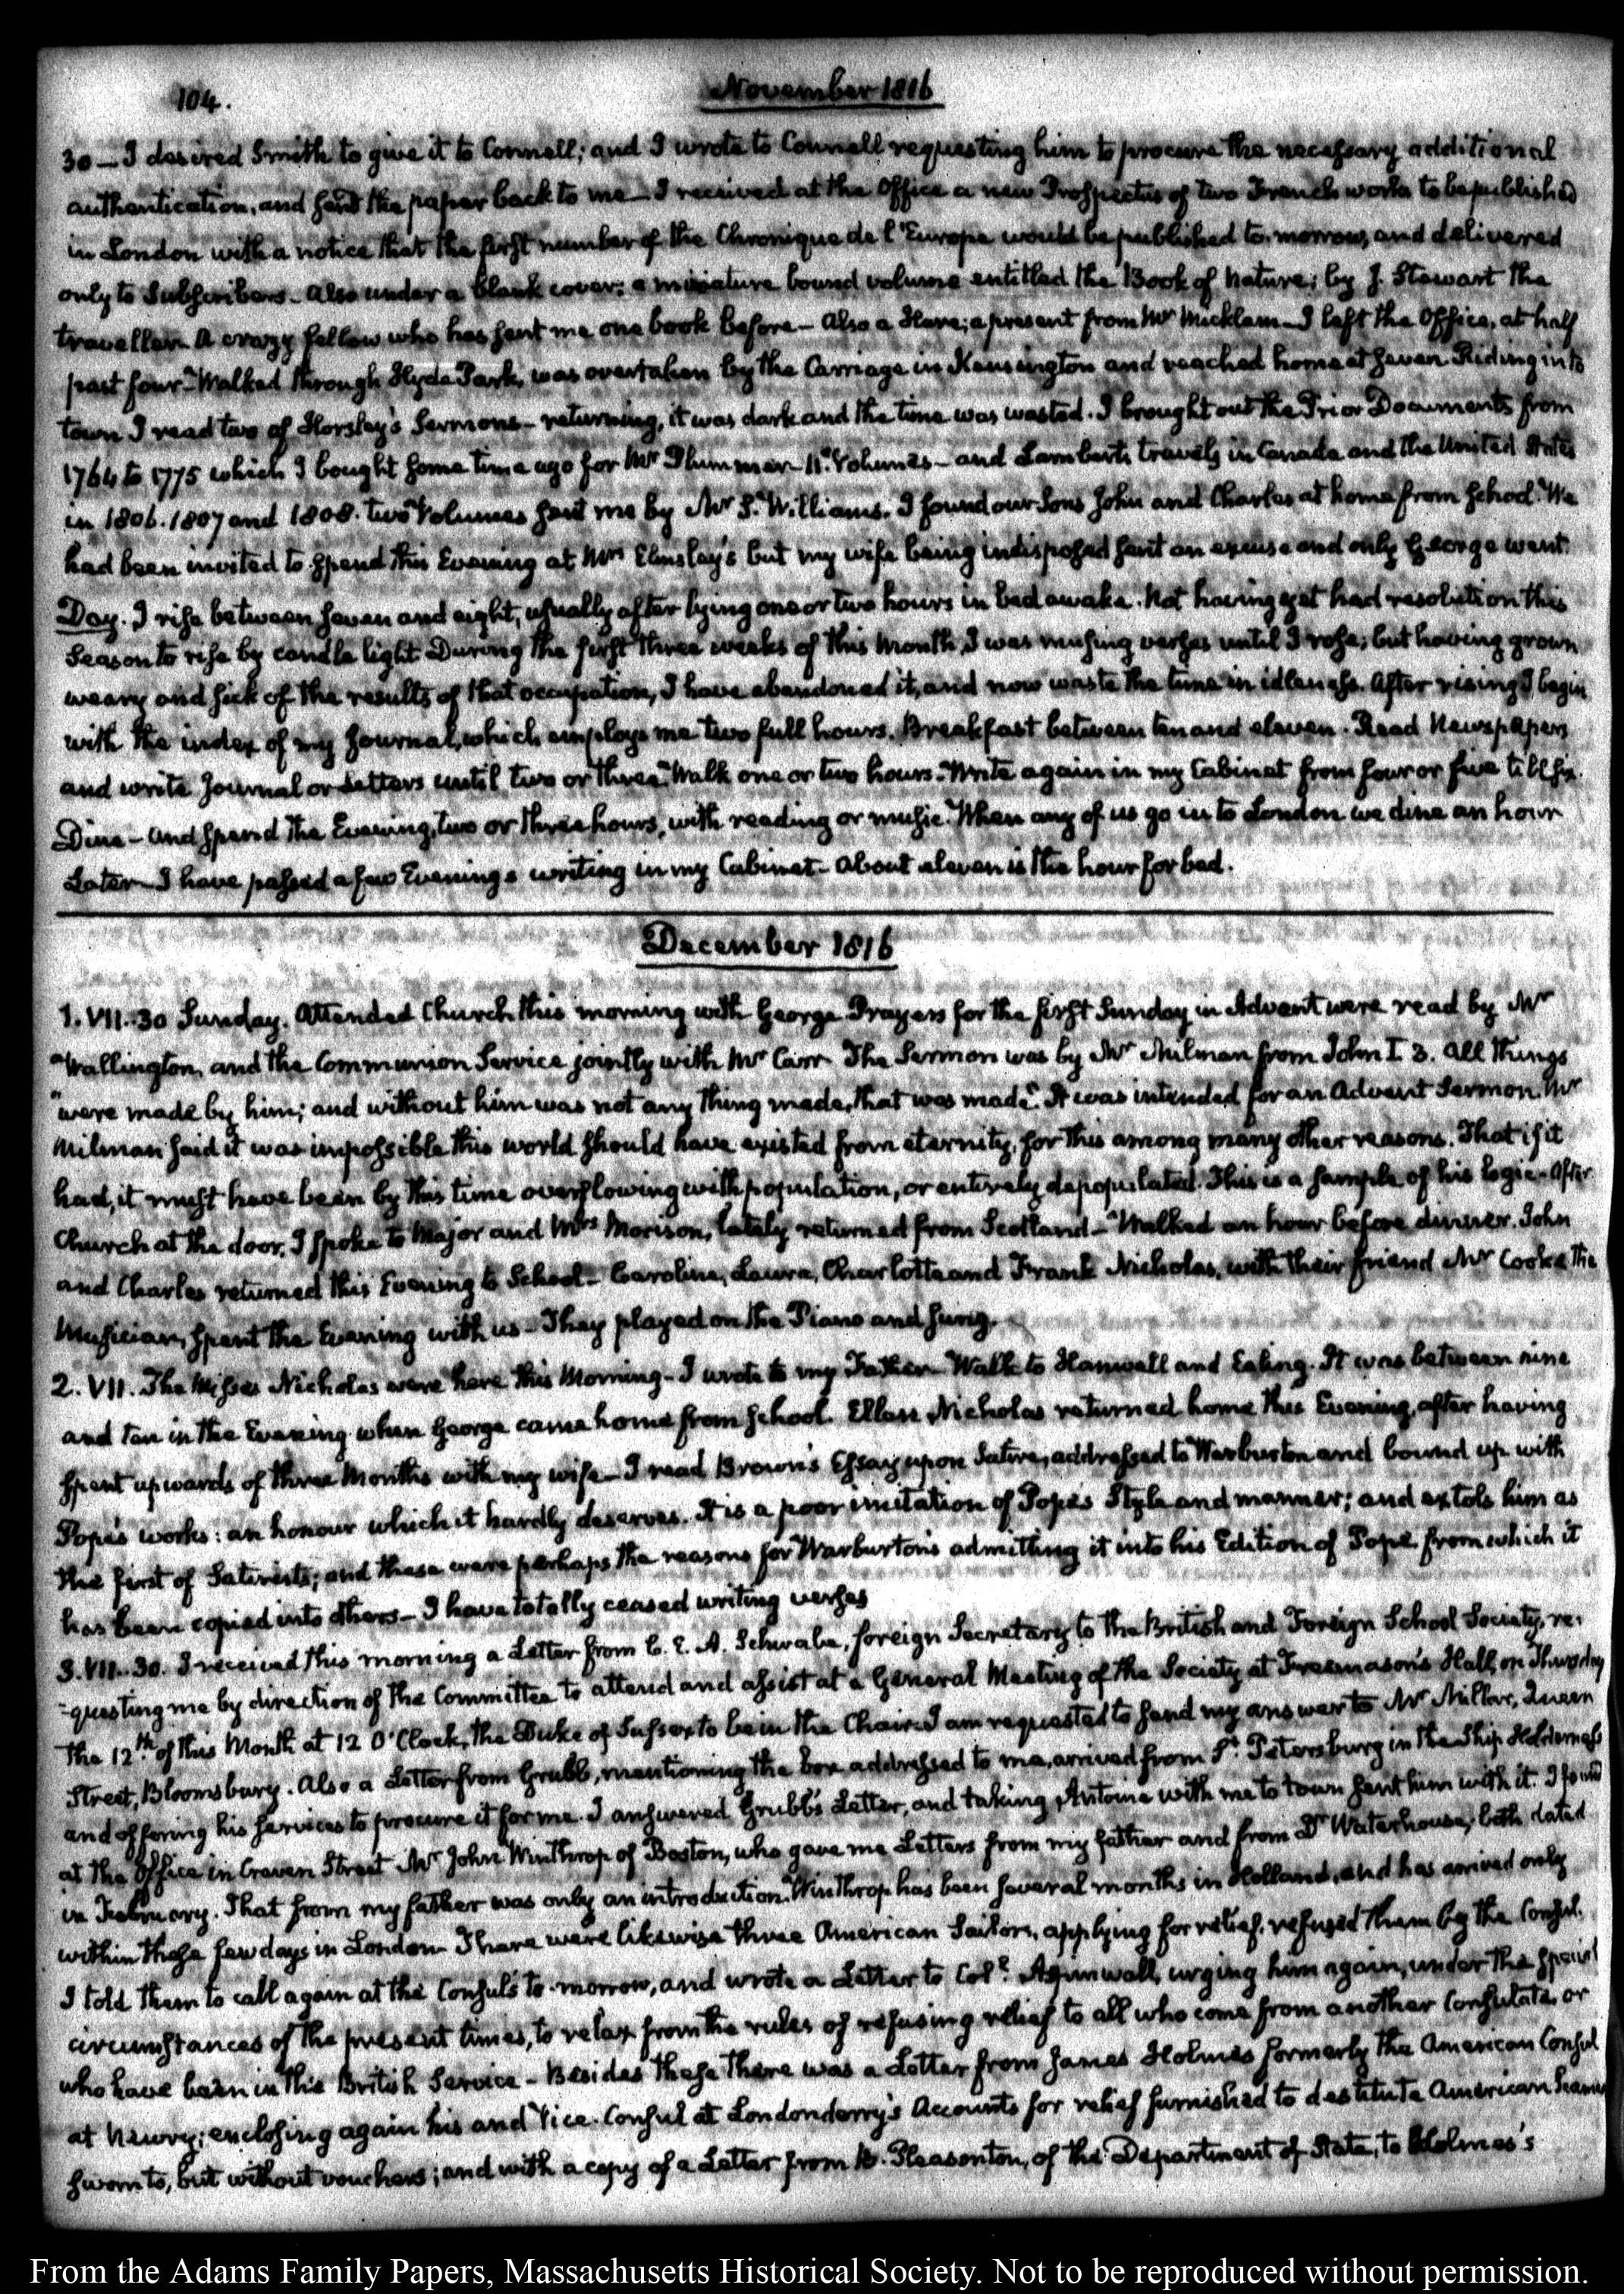 104.
November 1816
30 — I desired Smith to give it to Connell; and I wrote to Connell requesting him to procure the necessary additional
authentication, and send the paper back to me — I received at the Office a new Prospectus of two French works to be published
in London with a notice that the first number of the Chronique de l'Europe would be published to-morrow, and delivered
only to Subscribers — also under a blank cover; a miniature bound volume entitled the Book of Nature; by J. Stewart the
traveller. A crazy fellow who has sent me one book before — Also a Hare; a present from Mr Micklam — I left the Office, at half
past four — Walked through Hyde Park, was overtaken by the Carriage in Kensington and reached home at seven. Riding into
town I read two of Horsley's Sermons — returning, it was dark and the time was wasted. I brought out the Prior Documents from
1764 to 1775 which I bought some time ago for Mr Plummer — 11 Volumes — and Lambert's travels in Canada and the United States
in 1806. 1807 and 1808. two Volumes sent me by Mr S. Williams. I found our Sons John and Charles at home from School. We
had been invited to spend this Evening at Mrs Elmslay's but my wife being indisposed sent an excuse and only George went.
Day. I rise between seven and eight, usually after lying one or two hours in bed awake. Not having yet had resolution this
Season to rise by candle light. During the first three weeks of this Month, I was musing verses until I rose; but having grown
weary and sick of the results of that occupation, I have abandoned it, and now waste the time in idleness. After rising I begin
with the index of my Journal, which employs me two full hours. Breakfast between ten and eleven. Read Newspapers
and write Journal or Letters until two or three. Walk one or two hours. Write again in my Cabinet from four or five till six.
Dine — and spend the Evening, two or three hours, with reading or music. When any of us go in to London we dine an hour
Later — I have passed a few Evenings writing in my Cabinet — About eleven is the hour for bed.
December 1816
1. VII..30 Sunday. Attended Church this morning with George. Prayers for the first Sunday in Advent were read by Mr
Wallington, and the Communion Service jointly with Mr Carr. The Sermon was by Mr Milman from John I. 3. All things
"were made by him; and without him was not any thing made, that was made." It was intended for an Advent Sermon. Mr
Milman said it was impossible this world should have existed from eternity, for this among many other reasons. That if it
had, it must have been by this time overflowing with population, or entirely depopulated. This is a sample of his logic — After
Church at the door, I spoke to Major and Mrs Morison, lately returned from Scotland — Walked an hour before dinner. John
and Charles returned this Evening to School — Caroline, Laura, Charlotte and Frank Nicholas, with their friend Mr Cooke the
Musician, spent the Evening with us — They played on the Piano and sung.
2. VII. The Misses Nicholas were here this Morning — I wrote to my Father — Walk to Hanwell and Ealing. It was between nine
and ten in the Evening when George came home from School. Ellen Nicholas returned home this Evening, after having
spent upwards of three Months with my wife — I read Brown's Essay upon Satire, addressed to Warburton and bound up with
Pope's works: an honour which it hardly deserves. It is a poor imitation of Pope's Style and manner; and extols him as
the first of Satirists; and these were perhaps the reasons for Warburton's admitting it into his Edition of Pope from which it
has been copied into others — I have totally ceased writing verses
3. VII..30. I received this morning a Letter from C. E. A. Schwabe, foreign Secretary to the British and Foreign School Society, re-
-questing me by direction of the Committee to attend and assist at a General Meeting of the Society at Freemason's Hall, on Thursday
the 12th of this Month at 12 O'Clock, the Duke of Sussex to be in the Chair. I am requested to send my answer to Mr Millar, Queen
Street, Bloomsbury. Also a Letter from Grubb, mentioning the box addressed to me, arrived from St Petersburg in the Ship Holderness
and offering his services to procure it for me. I answered Grubb's Letter, and taking Antoine with me to town sent him with it. I found
at the Office in Craven Street Mr John Winthrop of Boston, who gave me Letters from my father and from Dr Waterhouse; both dated
in February. That from my father was only an introduction. Winthrop has been several months in Holland, and has arrived only
within these few days in London — There were likewise three American Sailors, applying for relief, refused them by the Consul.
I told them to call again at the Consul's to-morrow, and wrote a Letter to Coll Aspinwall, urging him again, under the special
circumstances of the present times, to relax from the rules of refusing relief to all who come from another Consulate, or
who have been in the British Service — Besides these there was a Letter from James Holmes formerly the American Consul
at Newry; enclosing again his and Vice-Consul at Londonderry's Accounts for relief furnished to destitute American Seamen
sworn to, but without vouchers; and with a copy of a Letter from Pleasonton, of the Department of State, to Holmes's
From the Adams Family Papers, Massachusetts Historical Society. Not to be reproduced without permission.